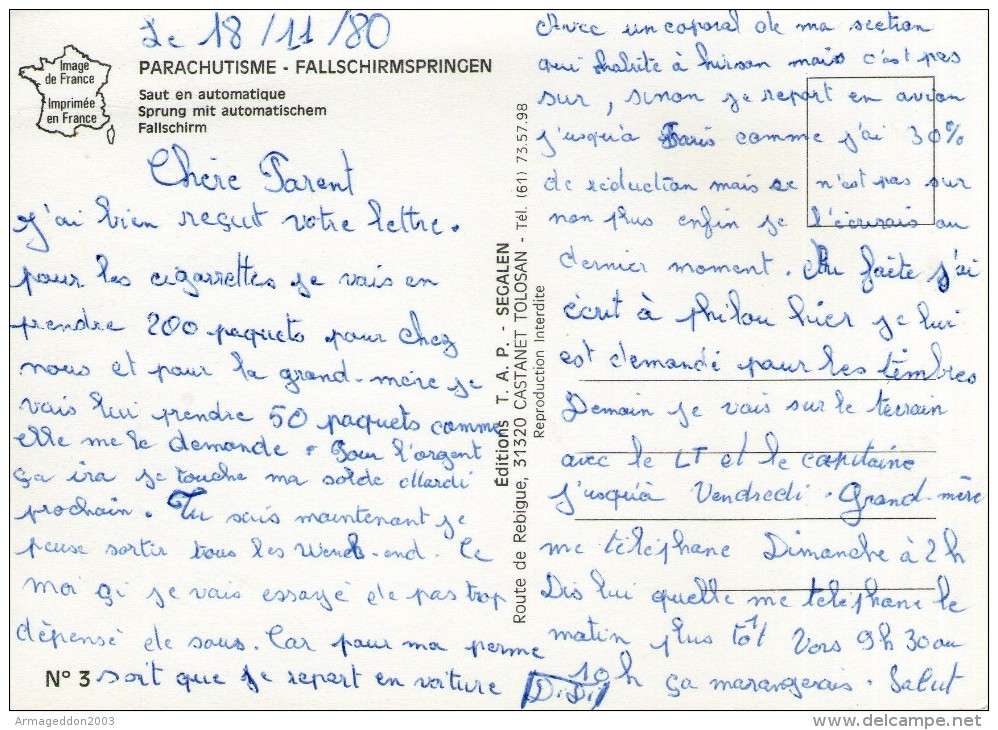 Le 18/11/80
Image
de France
Imprimée
en France
PARACHUTISME - FALLSCHIRMSPRINGEN
Saut en automatique
Sprung mit automatischem
Fallschirm
Chère Parent
J'ai bien reçut votre lettre.
pour les cigarrettes je vais en
prendre 200 paquets pour chez
nous et pour la grand-mère je
vais lui prendre 50 paquets comme
elle me le demande. Pour l'argent
ça ira je touche ma solde Mardi
prochain. Tu sais maintenant je
peuse sortir tous les Week-end. Ce
moi çi je vais essayé de pas trop
dépensé de sous. Car pour ma perme
N° 3 soit que je repart en voiture
Éditions T. A. P. - SEGALEN
Route de Rebigue, 31320 CASTANET TOLOSAN - Tél. (61) 73.57.98
Reproduction Interdite
Avec un caporal de ma section
qui habite à hirson mais c'est pas
sur, sinon je repart en avion
j'usqu'à Paris comme j'ai 30%
de réduction mais se n'est pas sur
non plus enfin je l'écrirais au
dernier moment. Au faite j'ai
écrit à philou hier je lui
est demandé pour les tembres
Demain je vais sur le terrain
avec le LT et le capitaine
j'usqu'à Vendredi. Grand-mère
me téléphone Dimanche à 2h
Dis lui quelle me telephone le
matin plus tôt Vers 9h30 au
10h ça marangerais. Salut
DiDi
Armageddon2003
delcampe.net